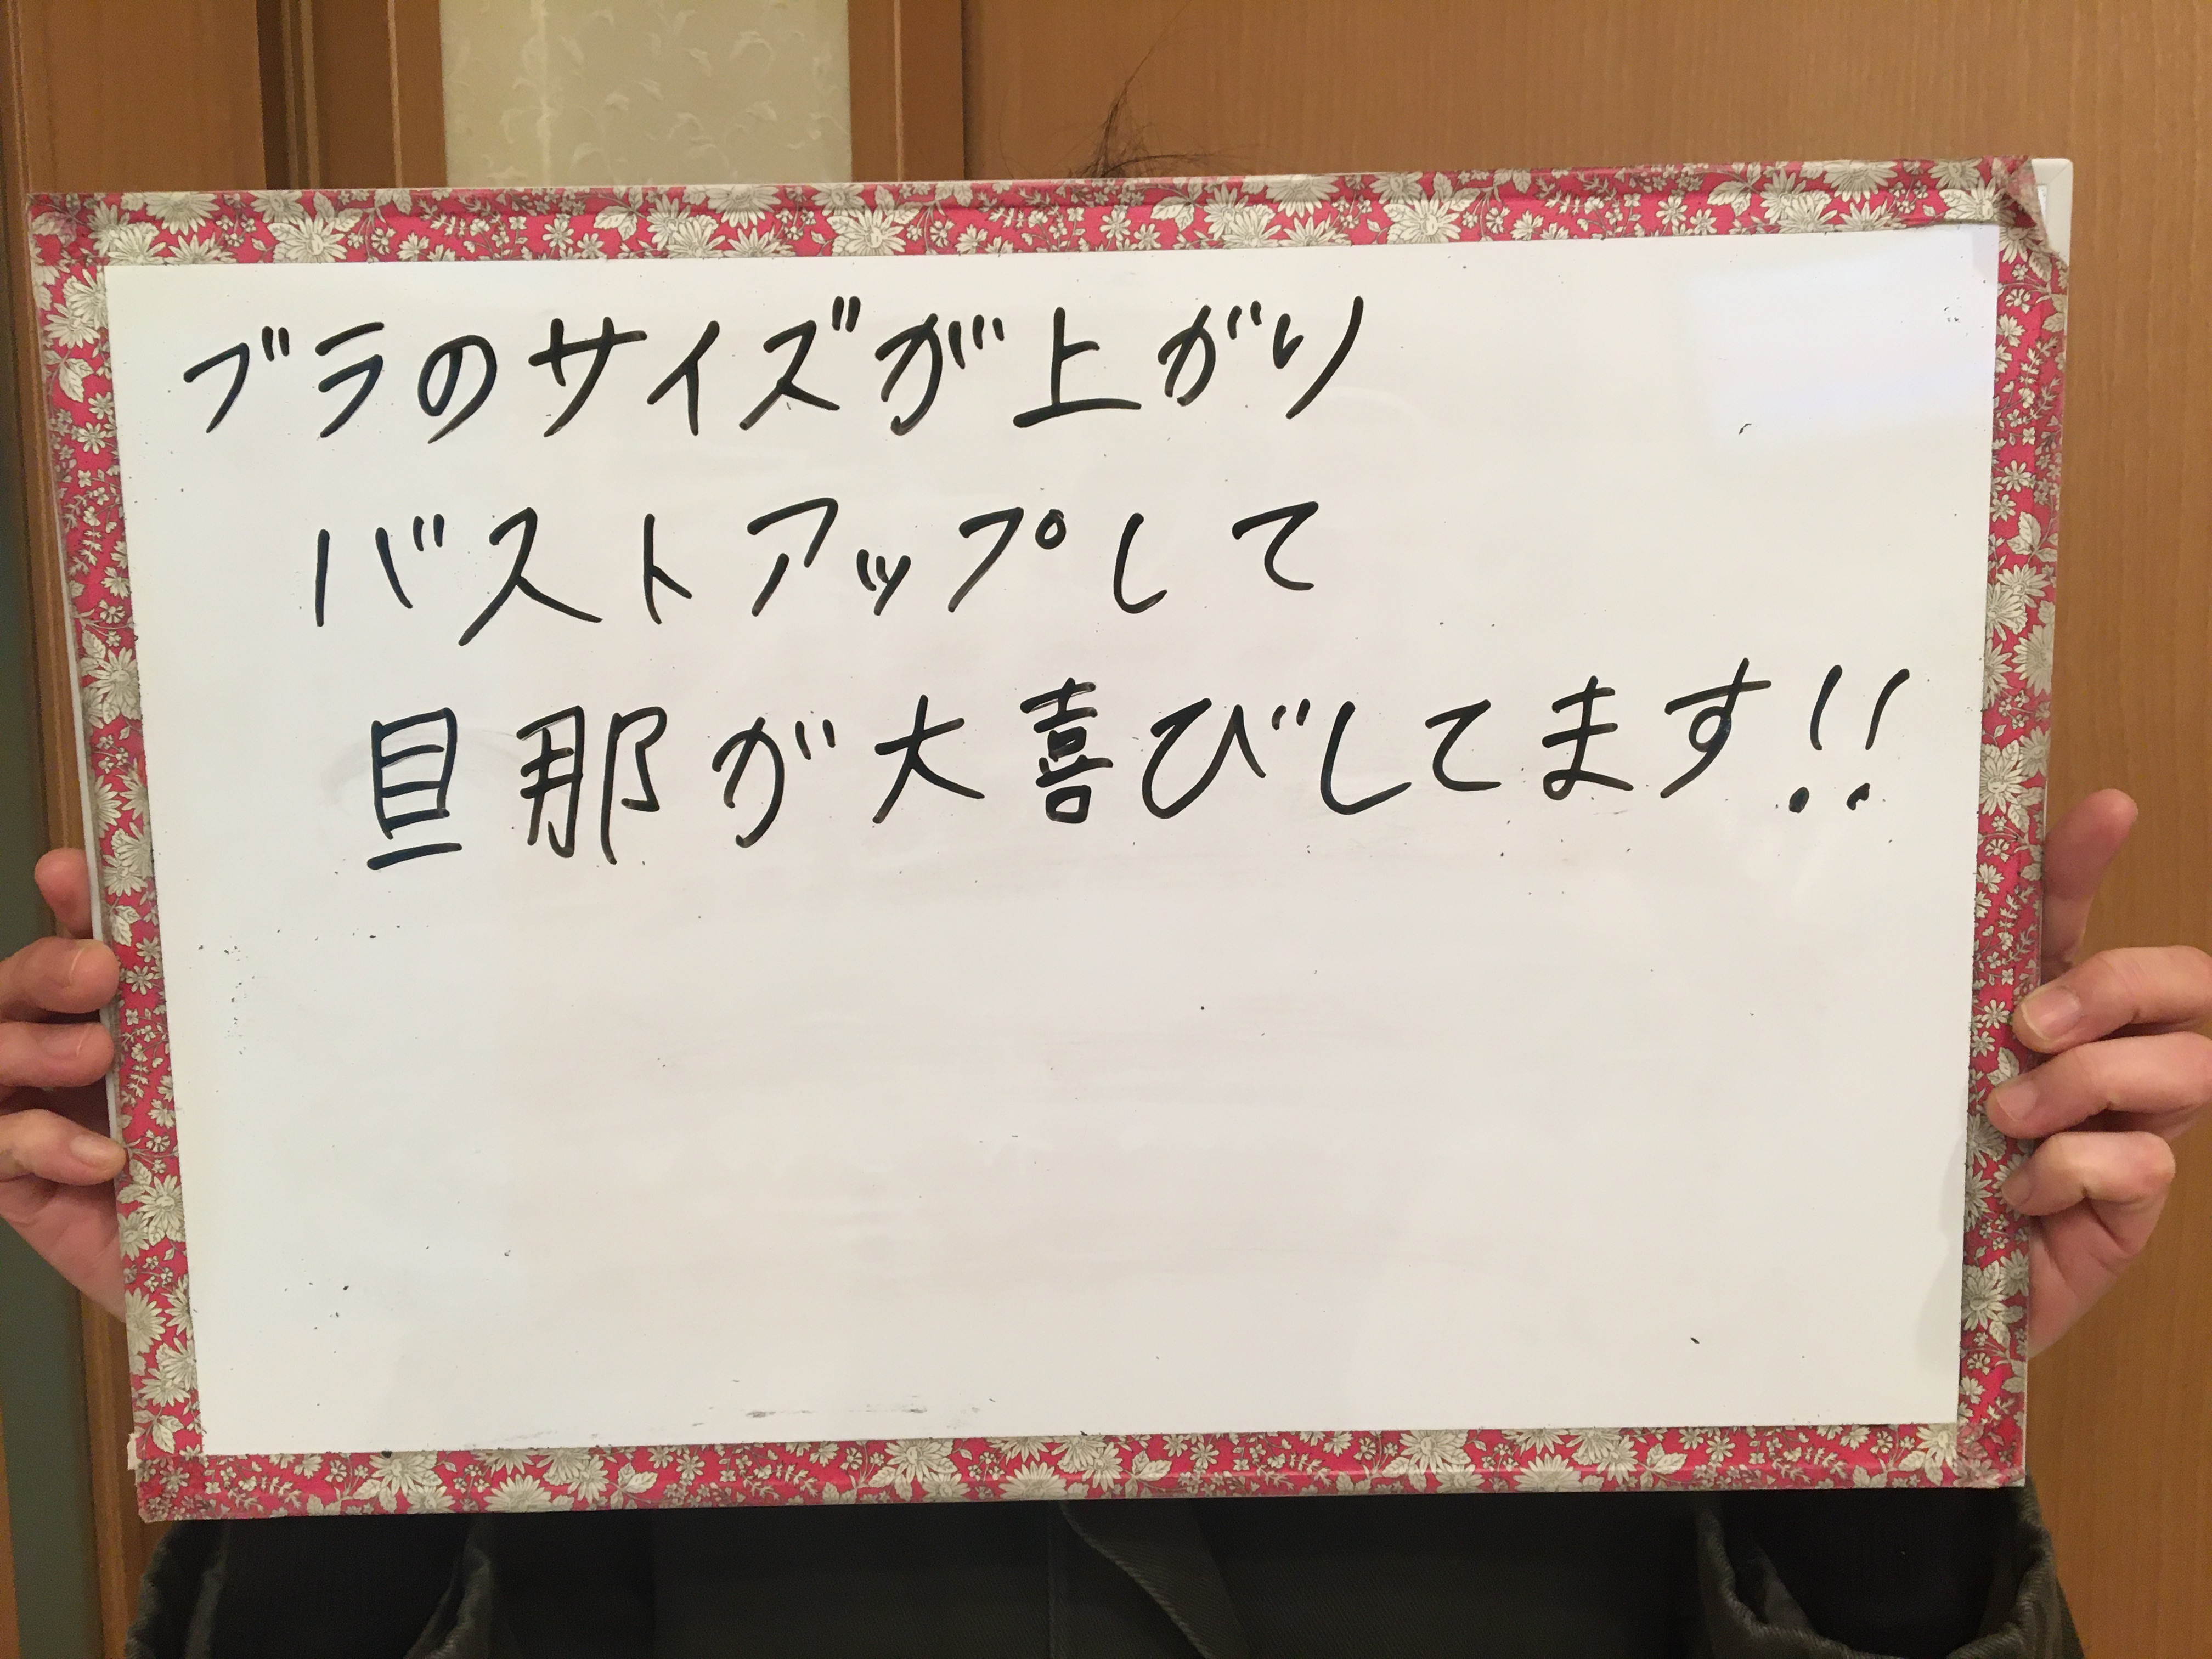 ブラのサイズが上がり
バストアップして
旦那が大喜びしてます!!